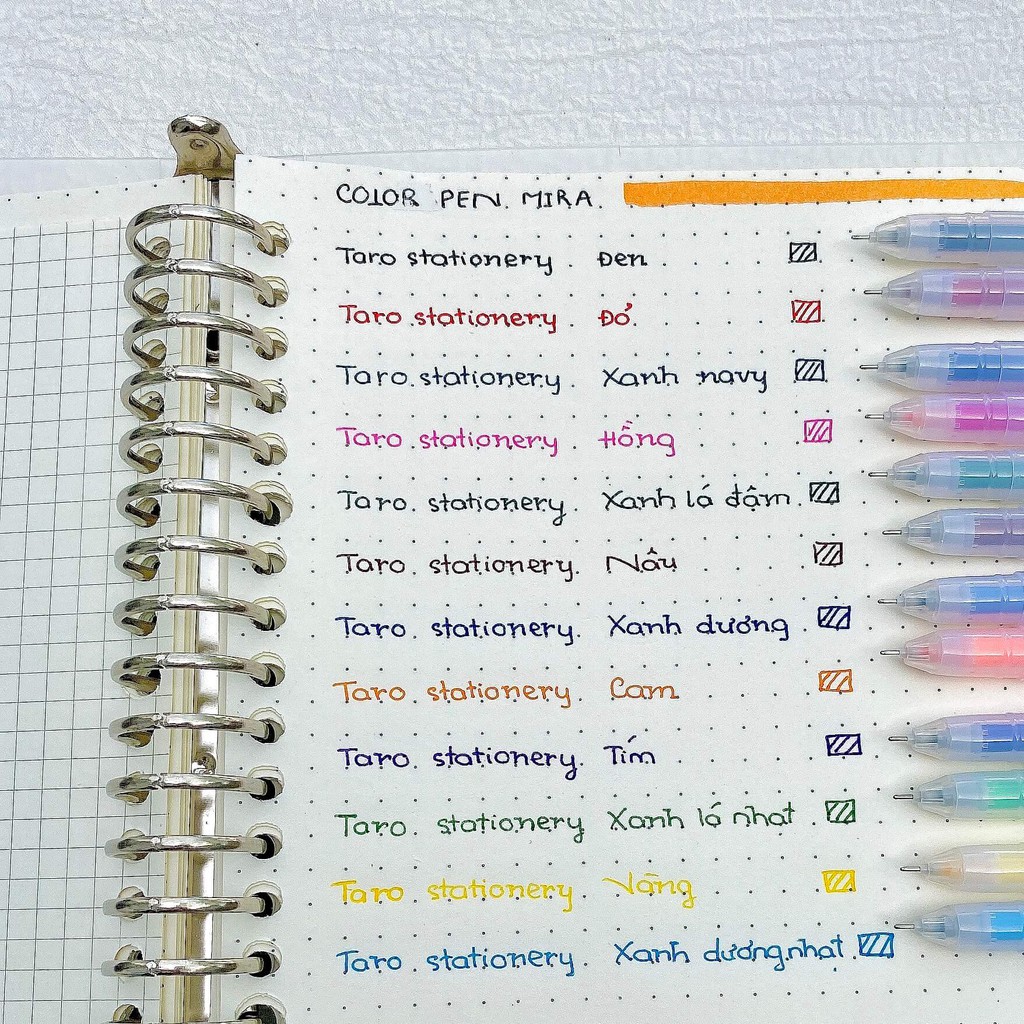 COLOR PEN. MIRA.
Taro stationery. Đen
Taro stationery. Đỏ
Taro stationery. Xanh navy
Taro stationery. Hồng
Taro stationery. Xanh lá đậm
Taro stationery. Nâu
Taro stationery. Xanh dương
Taro stationery. Cam
Taro stationery. Tím
Taro stationery Xanh lá nhạt
Taro stationery. Vàng
Taro stationery. Xanh dương nhạt